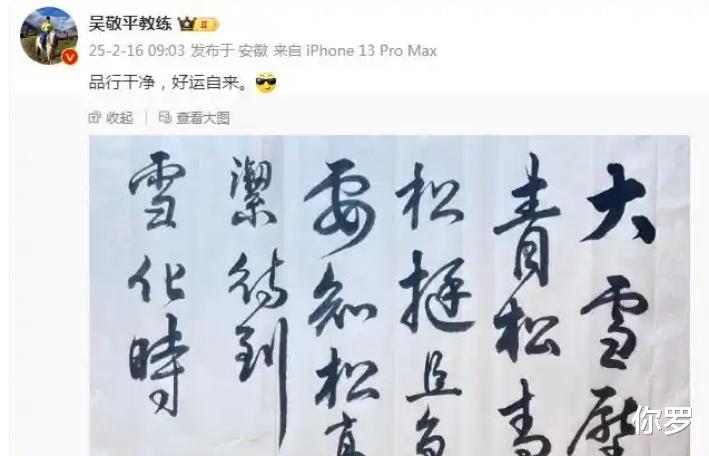 吴敬平教练 II
25-2-16 09:03 发布于 安徽 来自 iPhone 13 Pro Max
品行干净，好运自来。
收起 查看大图
大雪壓
青松青
松挺且
要知松高
潔待到
雪化時
你罗